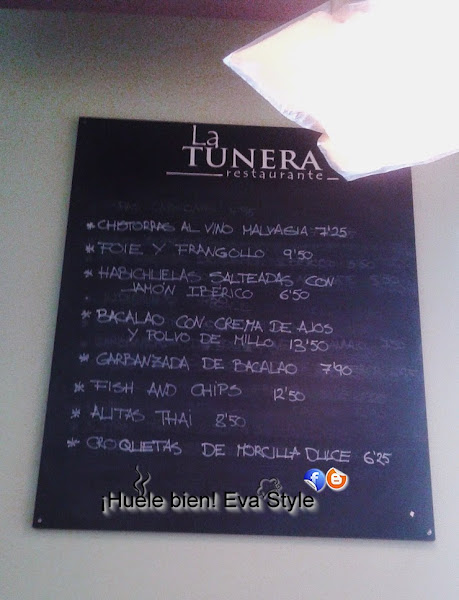 La
TUNERA
restaurante
* CHISTORRAS AL VINO MALVASIA 7'25
* FOIE Y FRANGOLLO 9'50
* HABICHUELAS SALTEADAS CON
JAMÓN IBÉRICO 6'50
* BACALAO CON CREMA DE AJOS
Y POLVO DE MILLO 13'50
* GARBANZADA DE BACALAO 7'90
* FISH AND CHIPS 12'50
* ALITAS THAI 8'50
* CROQUETAS DE MORCILLA DULCE 6'25
¡Huele bien! Eva Style